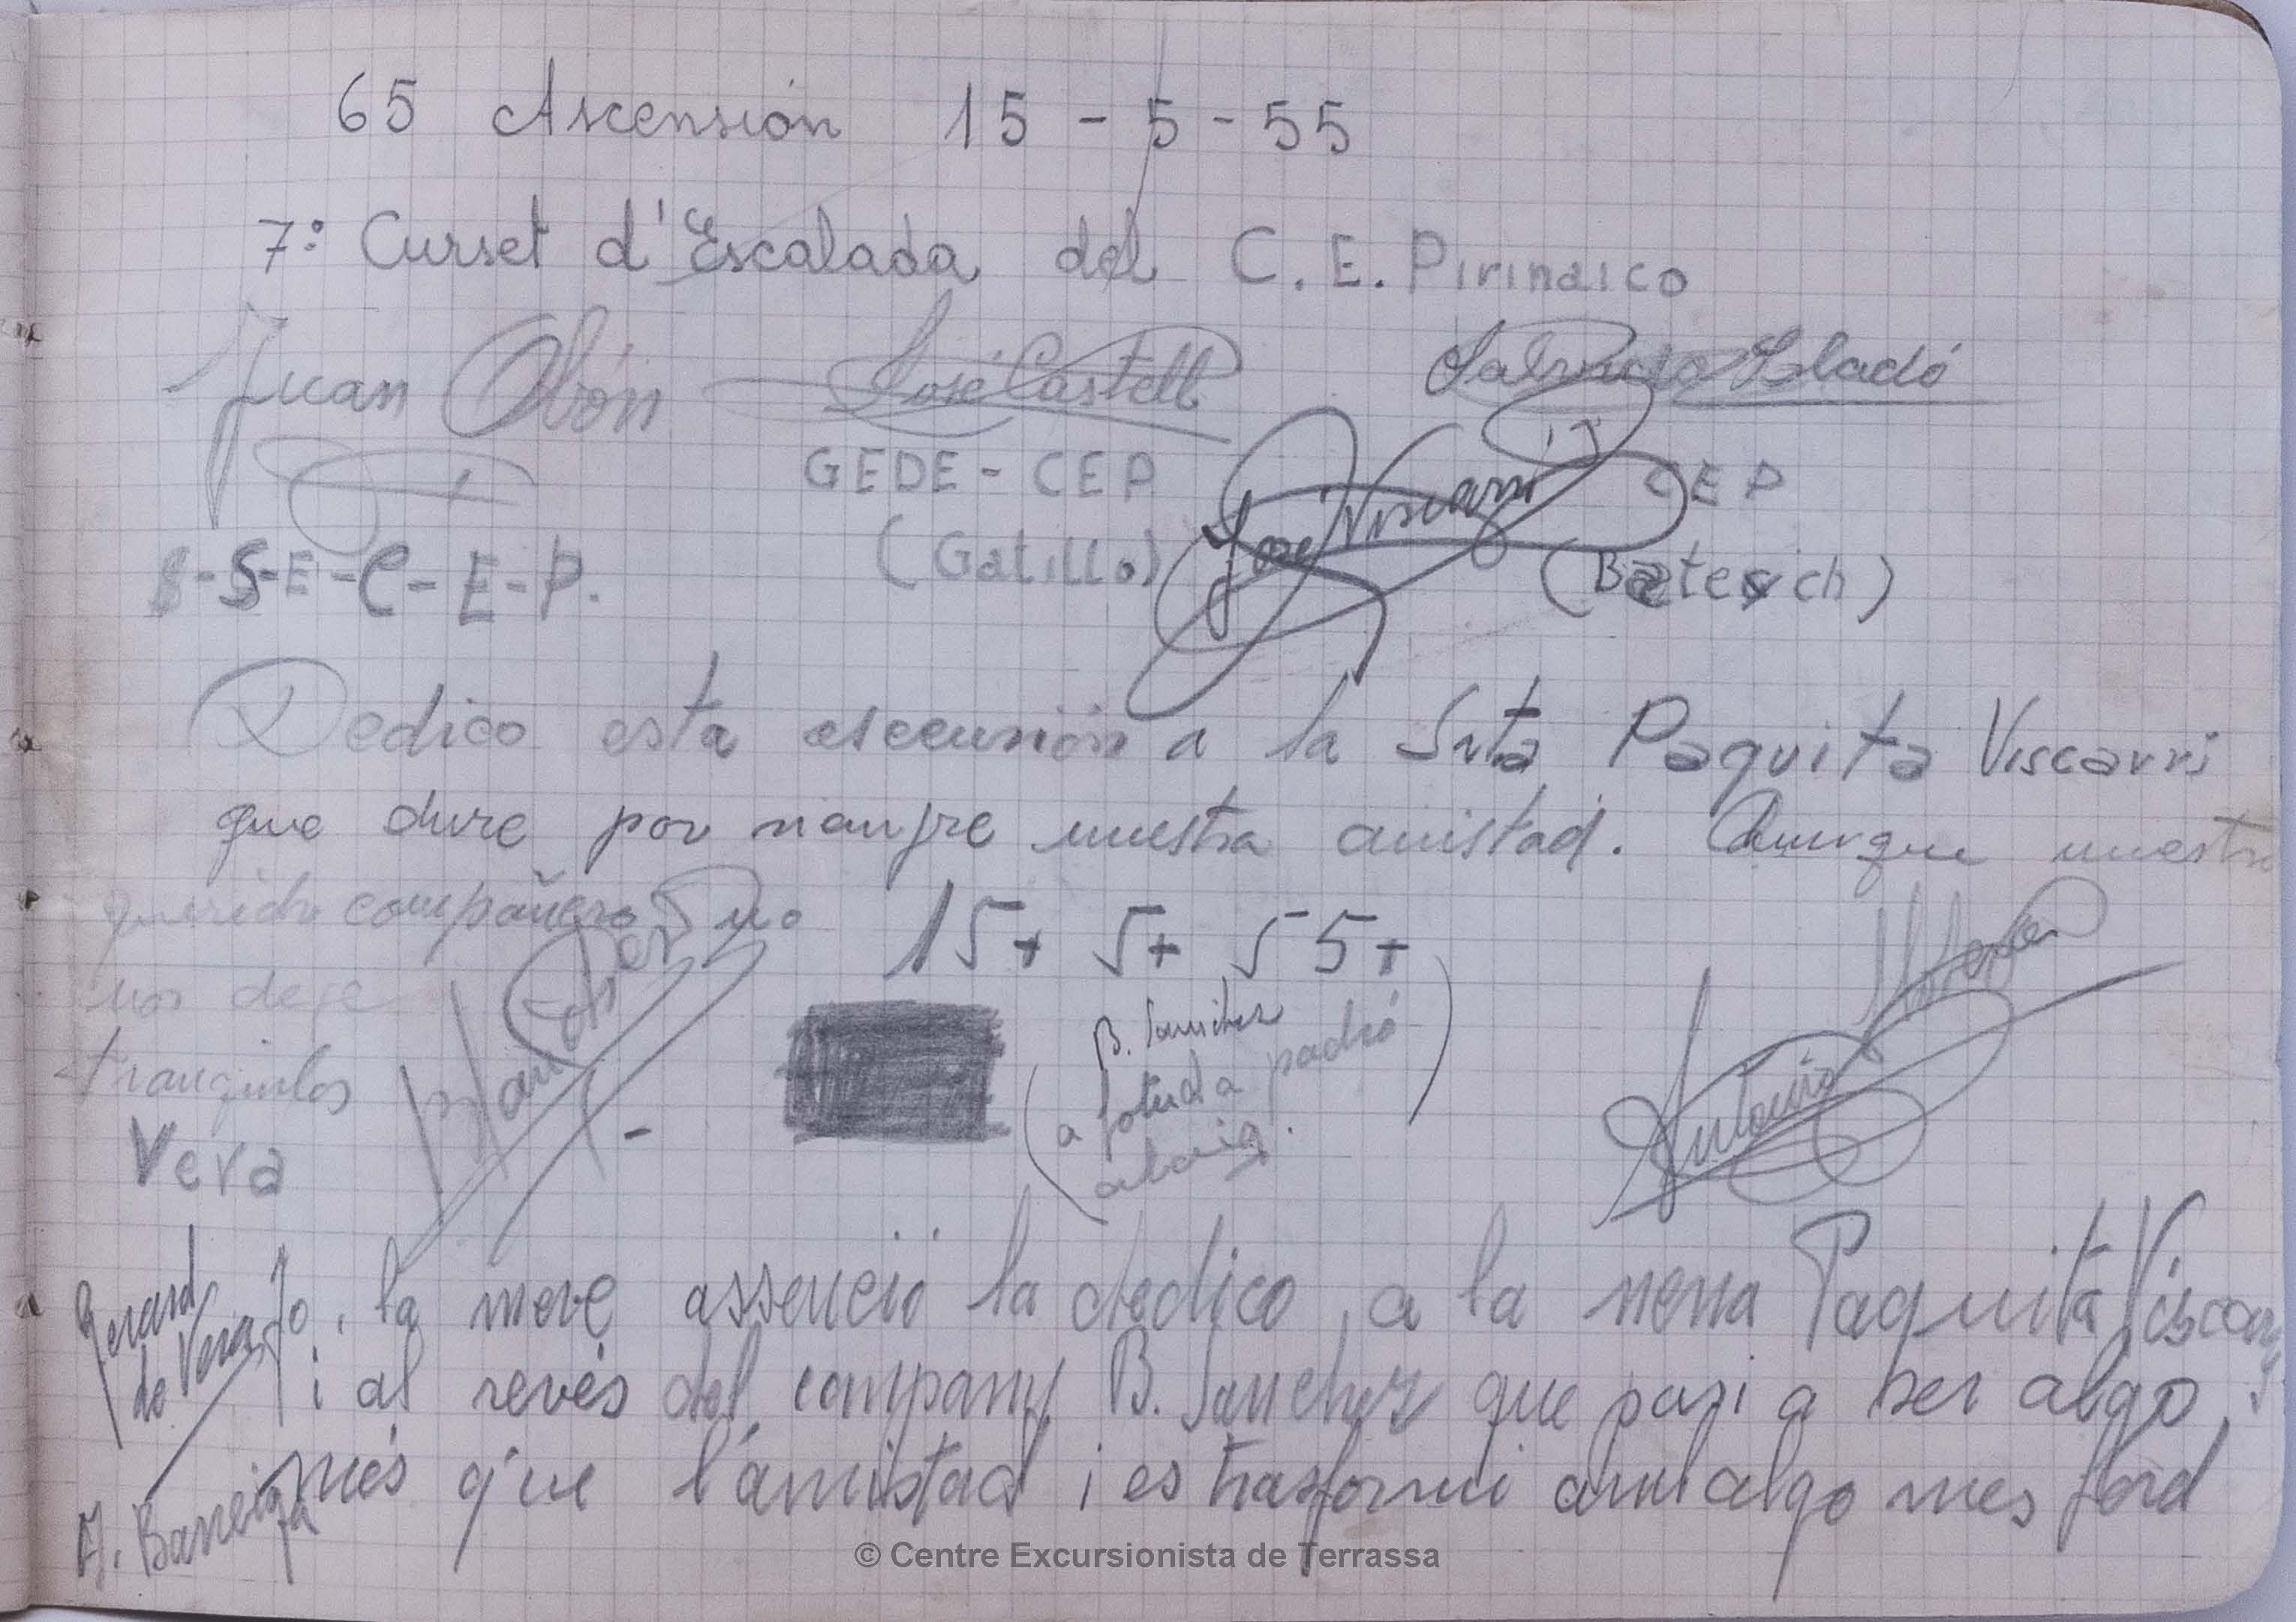 65 Ascensión 15-5-55
7º Curset d'Escalada del C.E. Pirinaico
Juan Obón José Castells Lladó
GEDE-CEP José Viscarri CEP
(Gatillo) (Batesch)
S-E-C-E-P.
Dedico esta ascensión a la Srta Paquita Viscarri
que dure por siempre nuestra amistad. Aunque nuestro
querido compañero no
nos deje
tranquilos
Vera
15+ 5+ 55+
(B. Sanchez
a fotud a padró
a baig.)
Antonio
Gerard de Vera
Jo, la meve assenció la dedico a la nena Paquita Viscarri
i al revés del company B. Sanchez que pasi a ser algo
més que l'amistad i es trasformi amb algo mes ford
A. Barreiga
© Centre Excursionista de Terrassa